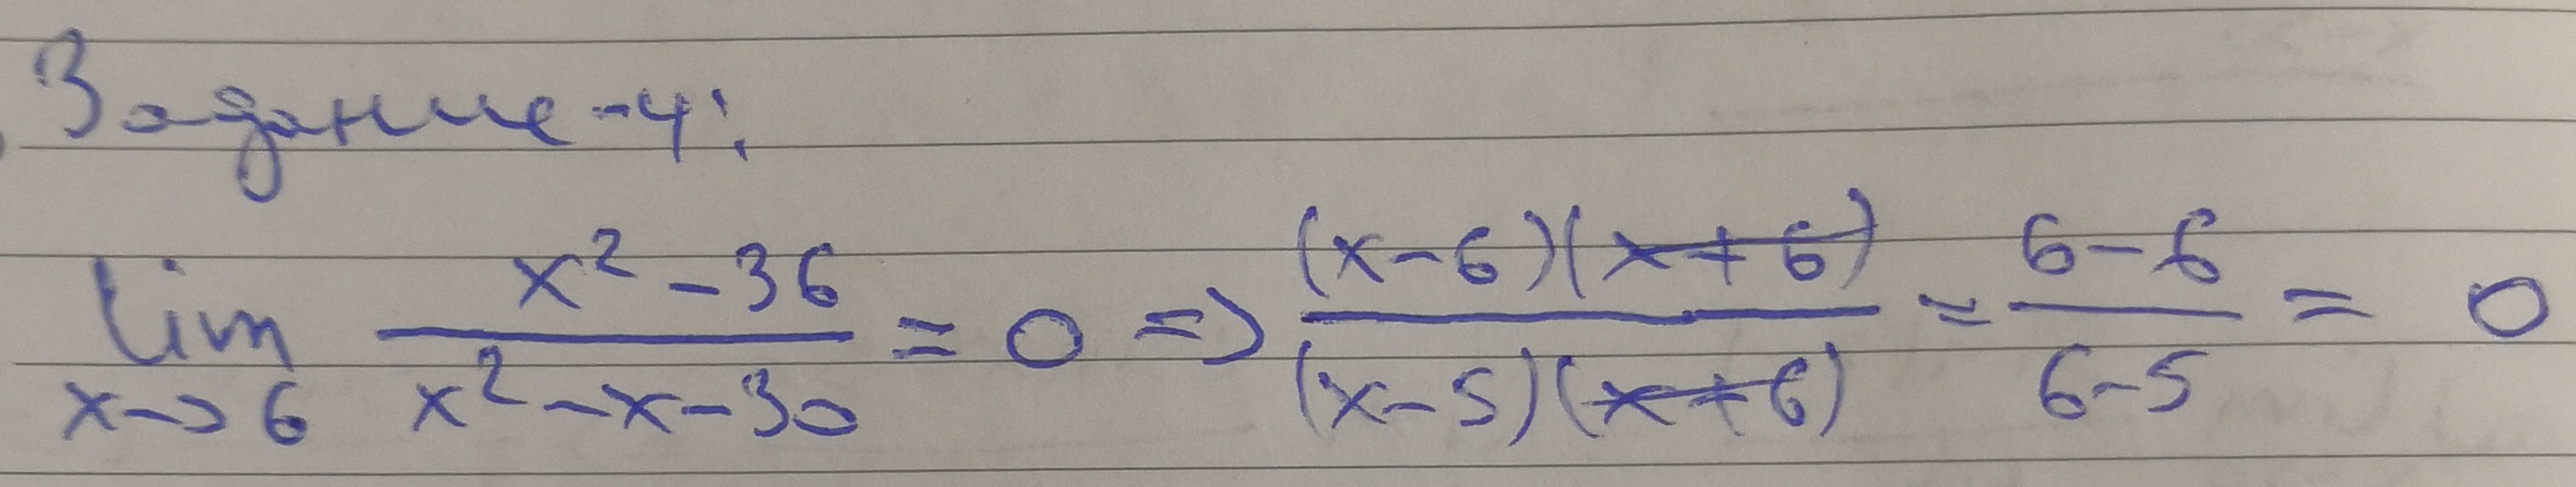 Задание-4:
lim x→6 (x² - 36)/(x² - x - 30) = 0 => ((x-6)(x+6))/((x-5)(x+6)) = (6-6)/(6-5) = 0